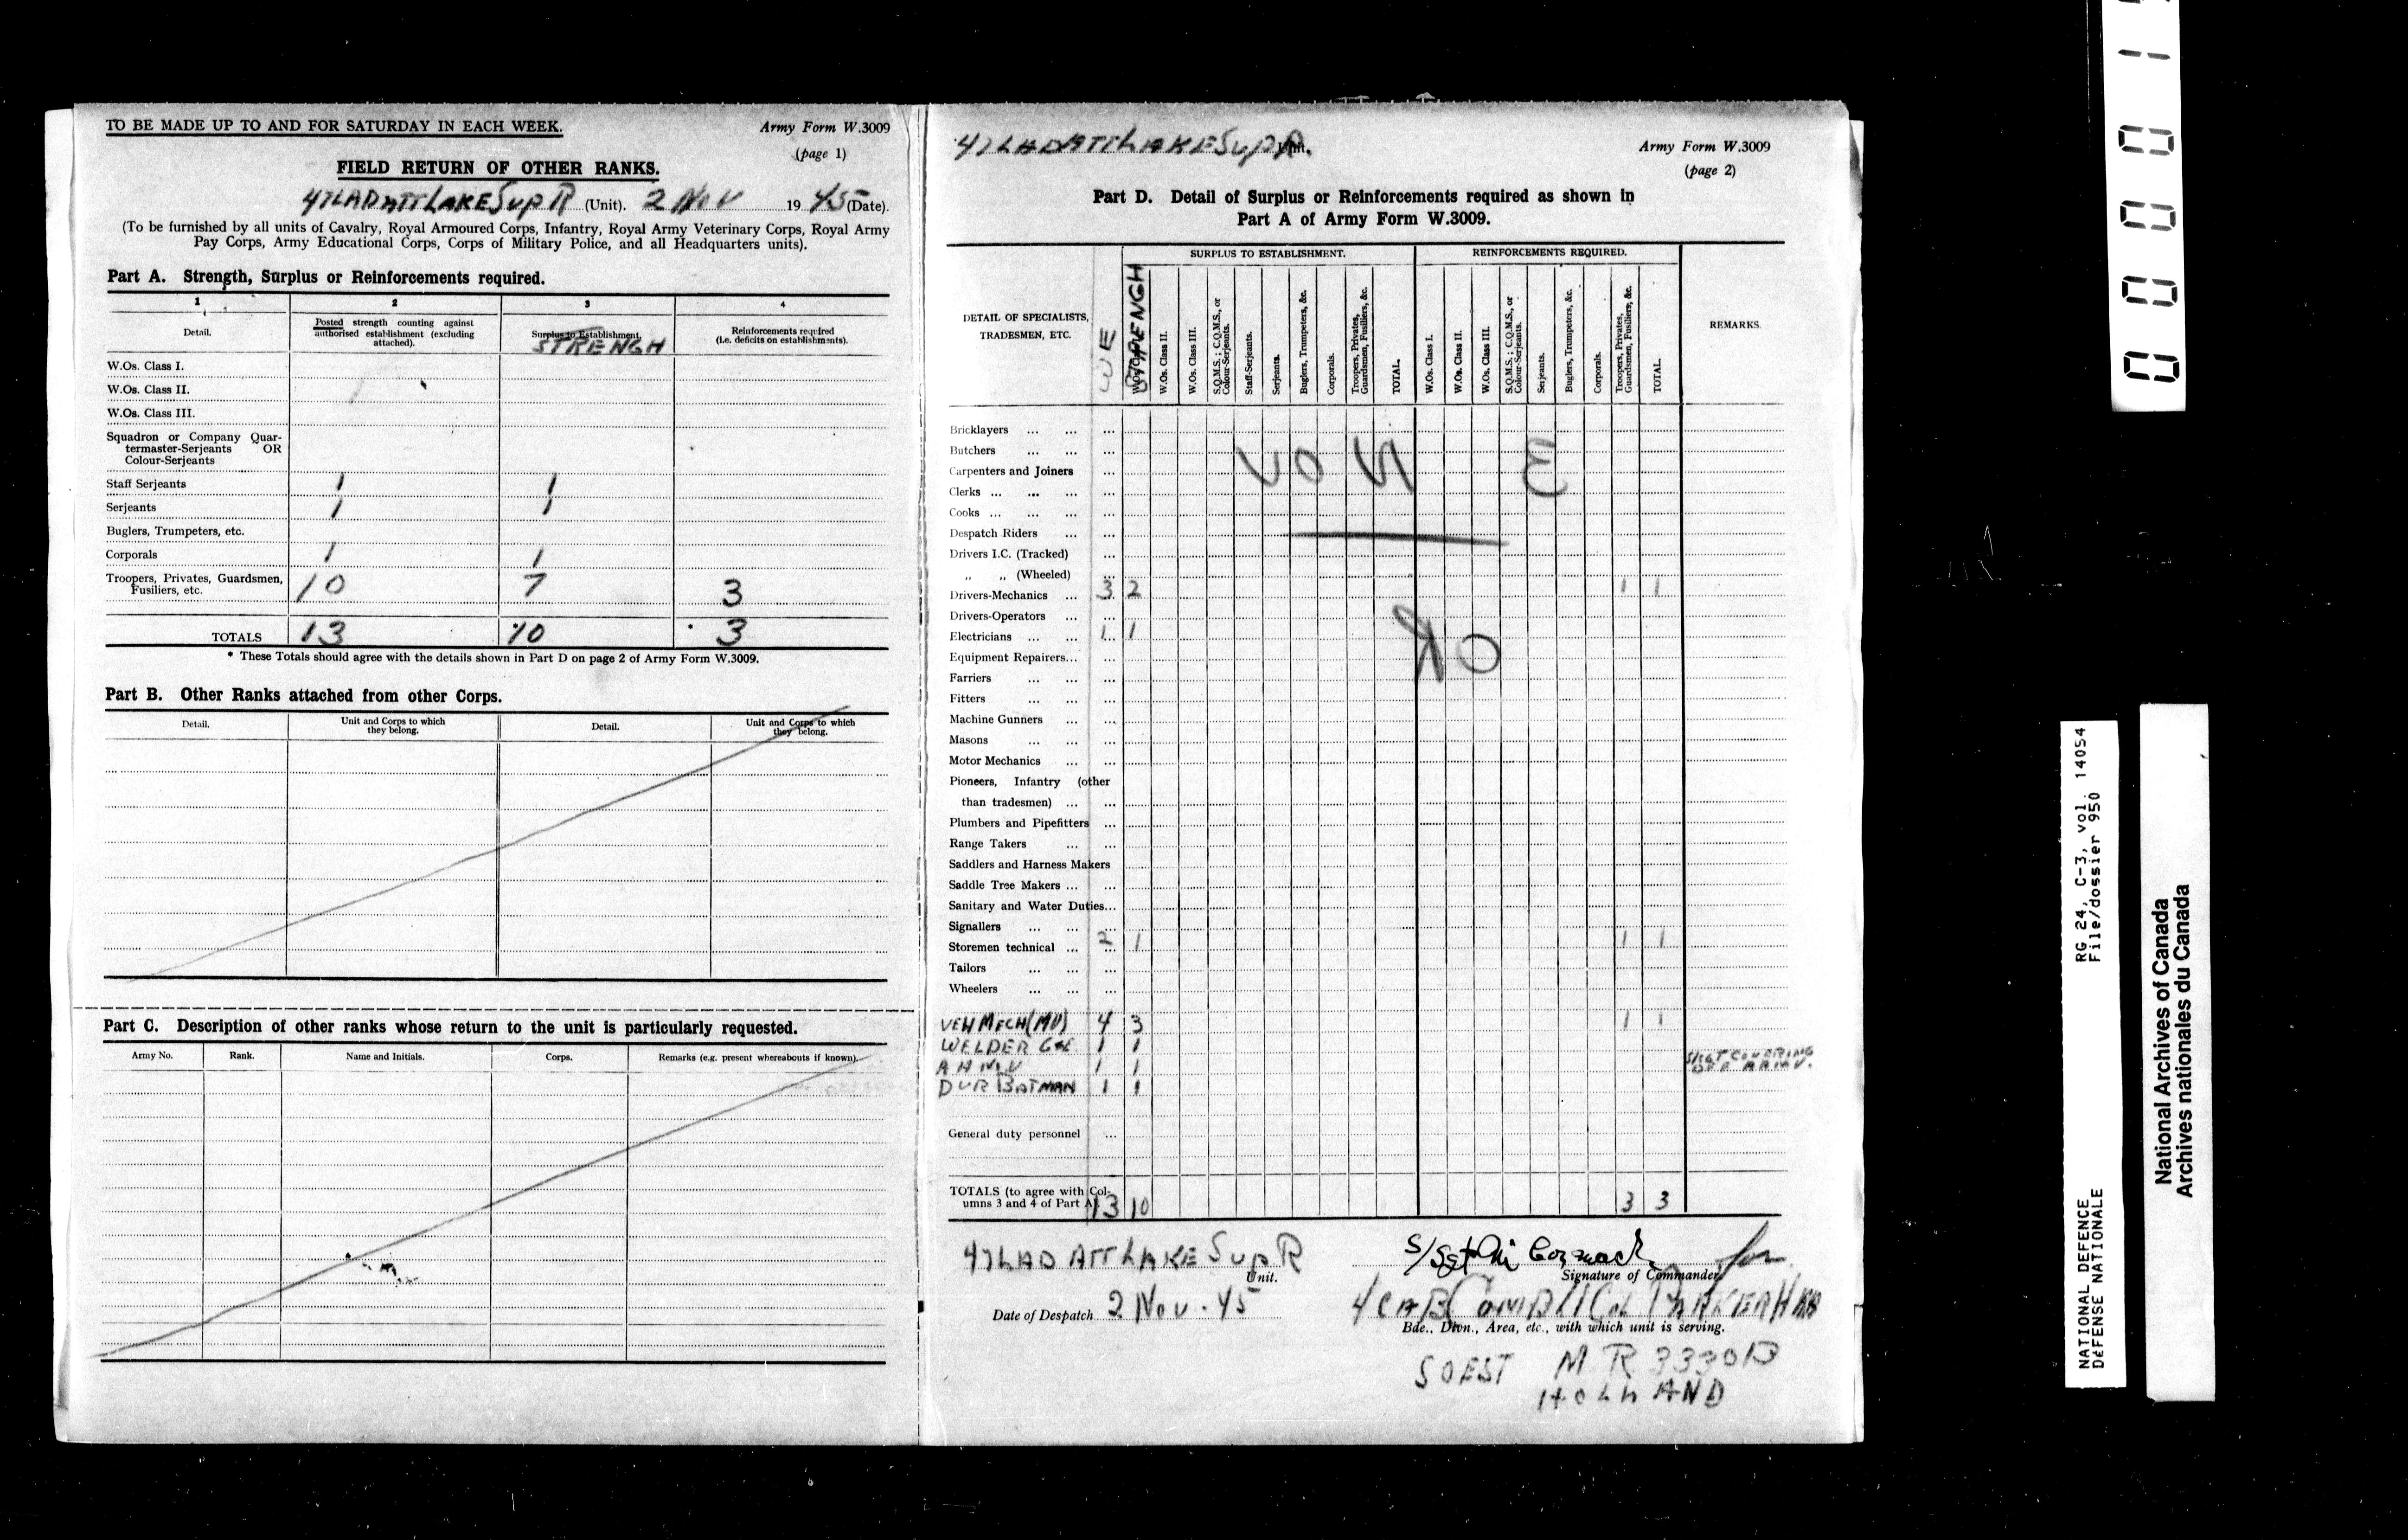 TO BE MADE UP TO AND FOR SATURDAY IN EACH WEEK.
Army Form W.3009
(page 1)
FIELD RETURN OF OTHER RANKS.
47 LAD ATT LAKE Sup R (Unit). 2 Nov 1945 (Date).
(To be furnished by all units of Cavalry, Royal Armoured Corps, Infantry, Royal Army Veterinary Corps, Royal Army
Pay Corps, Army Educational Corps, Corps of Military Police, and all Headquarters units).
Part A. Strength, Surplus or Reinforcements required.
1 2 3 4
Detail.
Posted strength counting against authorised establishment (excluding attached).
Surplus to Establishment.
STRENGH
Reinforcements required (i.e. deficits on establishments).
W.Os. Class I.
W.Os. Class II.
W.Os. Class III.
Squadron or Company Quar-
termaster-Serjeants OR
Colour-Serjeants
Staff Serjeants 1 1
Serjeants 1 1
Buglers, Trumpeters, etc.
Corporals 1 1
Troopers, Privates, Guardsmen,
Fusiliers, etc. 10 7 3
TOTALS 13 10 3
* These Totals should agree with the details shown in Part D on page 2 of Army Form W.3009.
Part B. Other Ranks attached from other Corps.
Detail. Unit and Corps to which they belong. Detail. Unit and Corps to which they belong.
Part C. Description of other ranks whose return to the unit is particularly requested.
Army No. Rank. Name and Initials. Corps. Remarks (e.g. present whereabouts if known).
47 LAD ATT LAKE Sup R. Unit.
Army Form W.3009
(page 2)
Part D. Detail of Surplus or Reinforcements required as shown in
Part A of Army Form W.3009.
DETAIL OF SPECIALISTS,
TRADESMEN, ETC.
WE
STRENGH
SURPLUS TO ESTABLISHMENT.
W.Os. Class II.
W.Os. Class III.
S.Q.M.S.; C.Q.M.S., or Colour-Serjeants.
Staff-Serjeants.
Serjeants.
Buglers, Trumpeters, &c.
Corporals.
Troopers, Privates, Guardsmen, Fusiliers, &c.
TOTAL.
REINFORCEMENTS REQUIRED.
W.Os. Class I.
W.Os. Class II.
W.Os. Class III.
S.Q.M.S.; C.Q.M.S., or Colour-Serjeants.
Serjeants.
Buglers, Trumpeters, &c.
Corporals.
Troopers, Privates, Guardsmen, Fusiliers, &c.
TOTAL.
REMARKS.
Bricklayers ... ... ...
Butchers ... ... ...
Carpenters and Joiners ...
Clerks ... ... ... ...
Cooks ... ... ... ...
Despatch Riders ... ...
Drivers I.C. (Tracked) ...
„ „ (Wheeled) ...
Drivers-Mechanics ... 3 2 1 1
Drivers-Operators ... ...
Electricians ... ... 1 1
Equipment Repairers... ...
Farriers ... ... ...
Fitters ... ... ...
Machine Gunners ... ...
Masons ... ... ...
Motor Mechanics ... ...
Pioneers, Infantry (other
than tradesmen) ... ...
Plumbers and Pipefitters ...
Range Takers ... ...
Saddlers and Harness Makers
Saddle Tree Makers ... ...
Sanitary and Water Duties...
Signallers ... ... ...
Storemen technical ... 2 1 1 1
Tailors ... ... ...
Wheelers ... ... ...
VEH MECH (MV) 4 3 1 1
WELDER G&E 1 1
1 1
DVR BATMAN 1 1
General duty personnel ...
TOTALS (to agree with Col-
umns 3 and 4 of Part A). 13 10 3 3
47 LAD ATT LAKE Sup R
Unit.
S/Sgt Mc Cormack for
Signature of Commander
Date of Despatch 2 Nov. 45
Bde., Divn., Area, etc., with which unit is serving.
SOEST MR 3330B
HOLLAND
RG 24, C-3, vol. 14054
File/dossier 950
NATIONAL DEFENCE
DÉFENSE NATIONALE
National Archives of Canada
Archives nationales du Canada